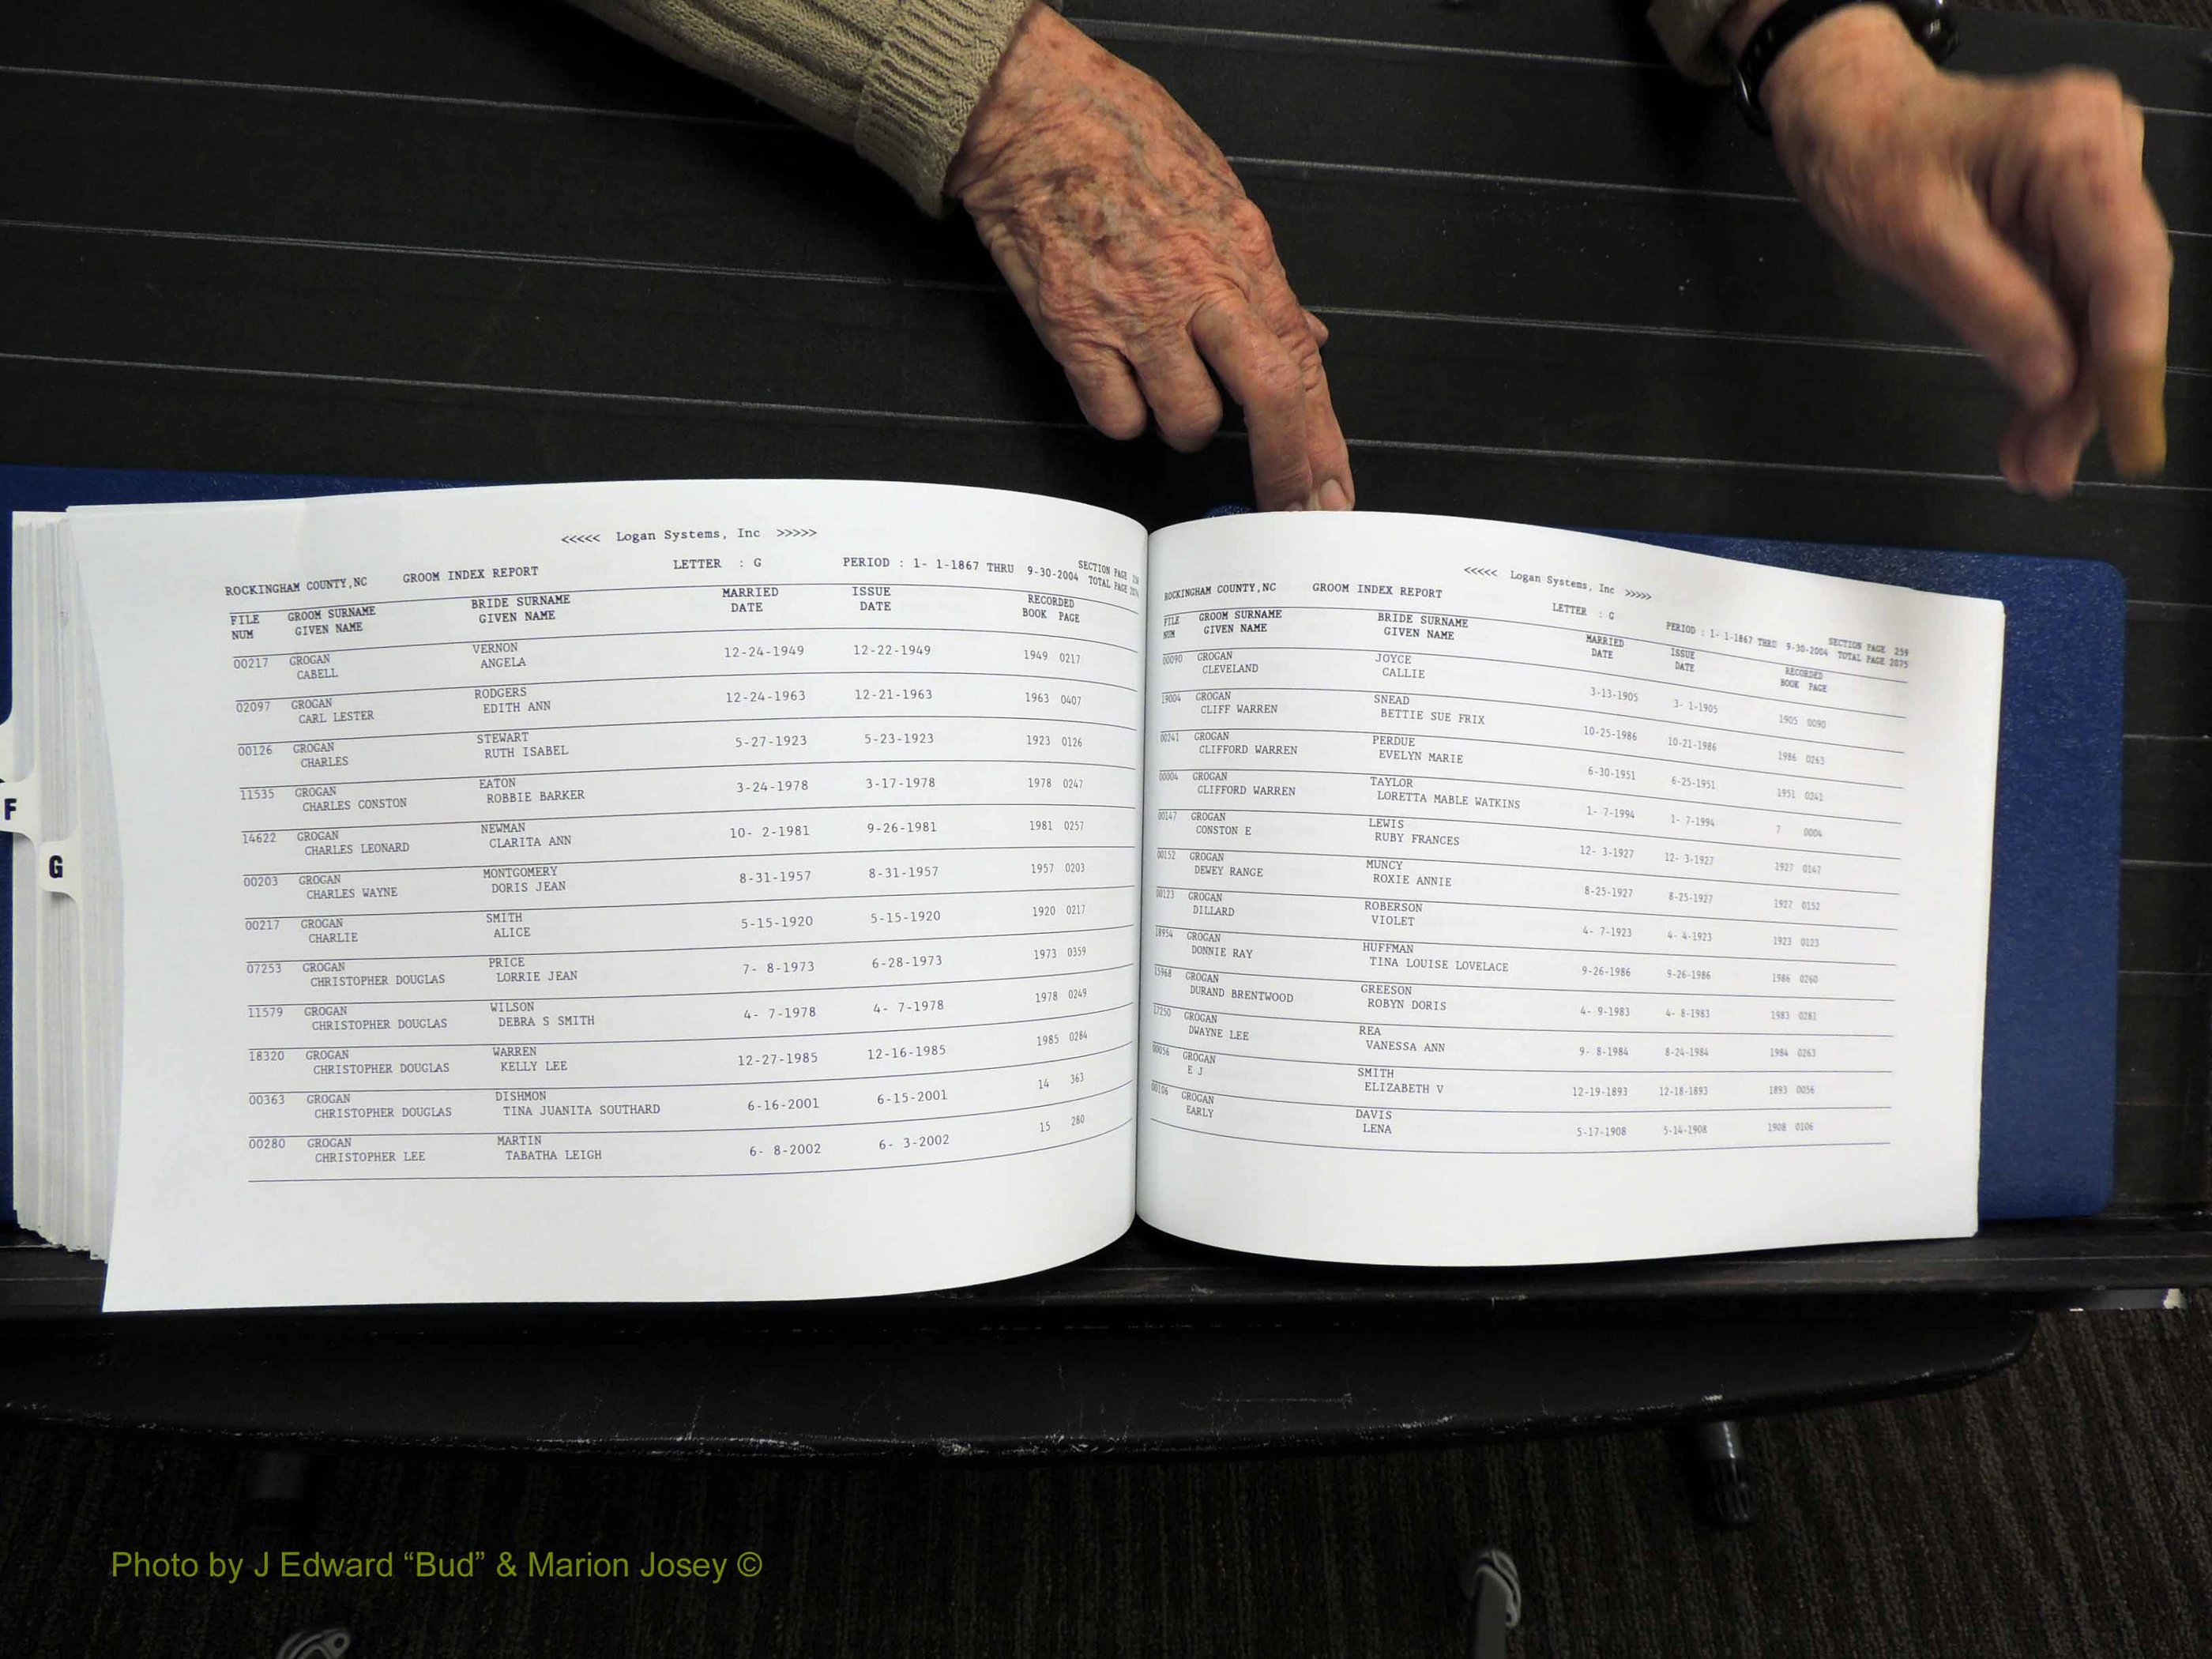 <<<<< Logan Systems, Inc >>>>>
ROCKINGHAM COUNTY,NC GROOM INDEX REPORT LETTER : G PERIOD : 1- 1-1867 THRU 9-30-2004 SECTION PAGE
TOTAL PAGE
FILE GROOM SURNAME BRIDE SURNAME MARRIED ISSUE RECORDED
NUM GIVEN NAME GIVEN NAME DATE DATE BOOK PAGE
00217 GROGAN VERNON 12-24-1949 12-22-1949 1949 0217
CABELL ANGELA
02097 GROGAN RODGERS 12-24-1963 12-21-1963 1963 0407
CARL LESTER EDITH ANN
00126 GROGAN STEWART 5-27-1923 5-23-1923 1923 0126
CHARLES RUTH ISABEL
11535 GROGAN EATON 3-24-1978 3-17-1978 1978 0247
CHARLES CONSTON ROBBIE BARKER
14622 GROGAN NEWMAN 10- 2-1981 9-26-1981 1981 0257
CHARLES LEONARD CLARITA ANN
00203 GROGAN MONTGOMERY 8-31-1957 8-31-1957 1957 0203
CHARLES WAYNE DORIS JEAN
00217 GROGAN SMITH 5-15-1920 5-15-1920 1920 0217
CHARLIE ALICE
07253 GROGAN PRICE 7- 8-1973 6-28-1973 1973 0359
CHRISTOPHER DOUGLAS LORRIE JEAN
11579 GROGAN WILSON 4- 7-1978 4- 7-1978 1978 0249
CHRISTOPHER DOUGLAS DEBRA S SMITH
18320 GROGAN WARREN 12-27-1985 12-16-1985 1985 0284
CHRISTOPHER DOUGLAS KELLY LEE
00363 GROGAN DISHMON 6-16-2001 6-15-2001 14 363
CHRISTOPHER DOUGLAS TINA JUANITA SOUTHARD
00280 GROGAN MARTIN 6- 8-2002 6- 3-2002 15 280
CHRISTOPHER LEE TABATHA LEIGH
F
G
<<<<< Logan Systems, Inc >>>>>
ROCKINGHAM COUNTY,NC GROOM INDEX REPORT LETTER : G PERIOD : 1- 1-1867 THRU 9-30-2004 SECTION PAGE 259
TOTAL PAGE 2075
FILE GROOM SURNAME BRIDE SURNAME MARRIED ISSUE RECORDED
NUM GIVEN NAME GIVEN NAME DATE DATE BOOK PAGE
00090 GROGAN JOYCE 3-13-1905 3- 1-1905 1905 0090
CLEVELAND CALLIE
19004 GROGAN SNEAD 10-25-1986 10-21-1986 1986 0263
CLIFF WARREN BETTIE SUE FRIX
00241 GROGAN PERDUE 6-30-1951 6-25-1951 1951 0241
CLIFFORD WARREN EVELYN MARIE
00004 GROGAN TAYLOR 1- 7-1994 1- 7-1994 7 0004
CLIFFORD WARREN LORETTA MABLE WATKINS
00147 GROGAN LEWIS 12- 3-1927 12- 3-1927 1927 0147
CONSTON E RUBY FRANCES
00152 GROGAN MUNCY 8-25-1927 8-25-1927 1927 0152
DEWEY RANGE ROXIE ANNIE
00123 GROGAN ROBERSON 4- 7-1923 4- 4-1923 1923 0123
DILLARD VIOLET
18954 GROGAN HUFFMAN 9-26-1986 9-26-1986 1986 0260
DONNIE RAY TINA LOUISE LOVELACE
15968 GROGAN GREESON 4- 9-1983 4- 8-1983 1983 0281
DURAND BRENTWOOD ROBYN DORIS
17250 GROGAN REA 9- 8-1984 8-24-1984 1984 0263
DWAYNE LEE VANESSA ANN
00056 GROGAN SMITH 12-19-1893 12-18-1893 1893 0056
E J ELIZABETH V
00106 GROGAN DAVIS 5-17-1908 5-14-1908 1908 0106
EARLY LENA
Photo by J Edward “Bud” & Marion Josey ©